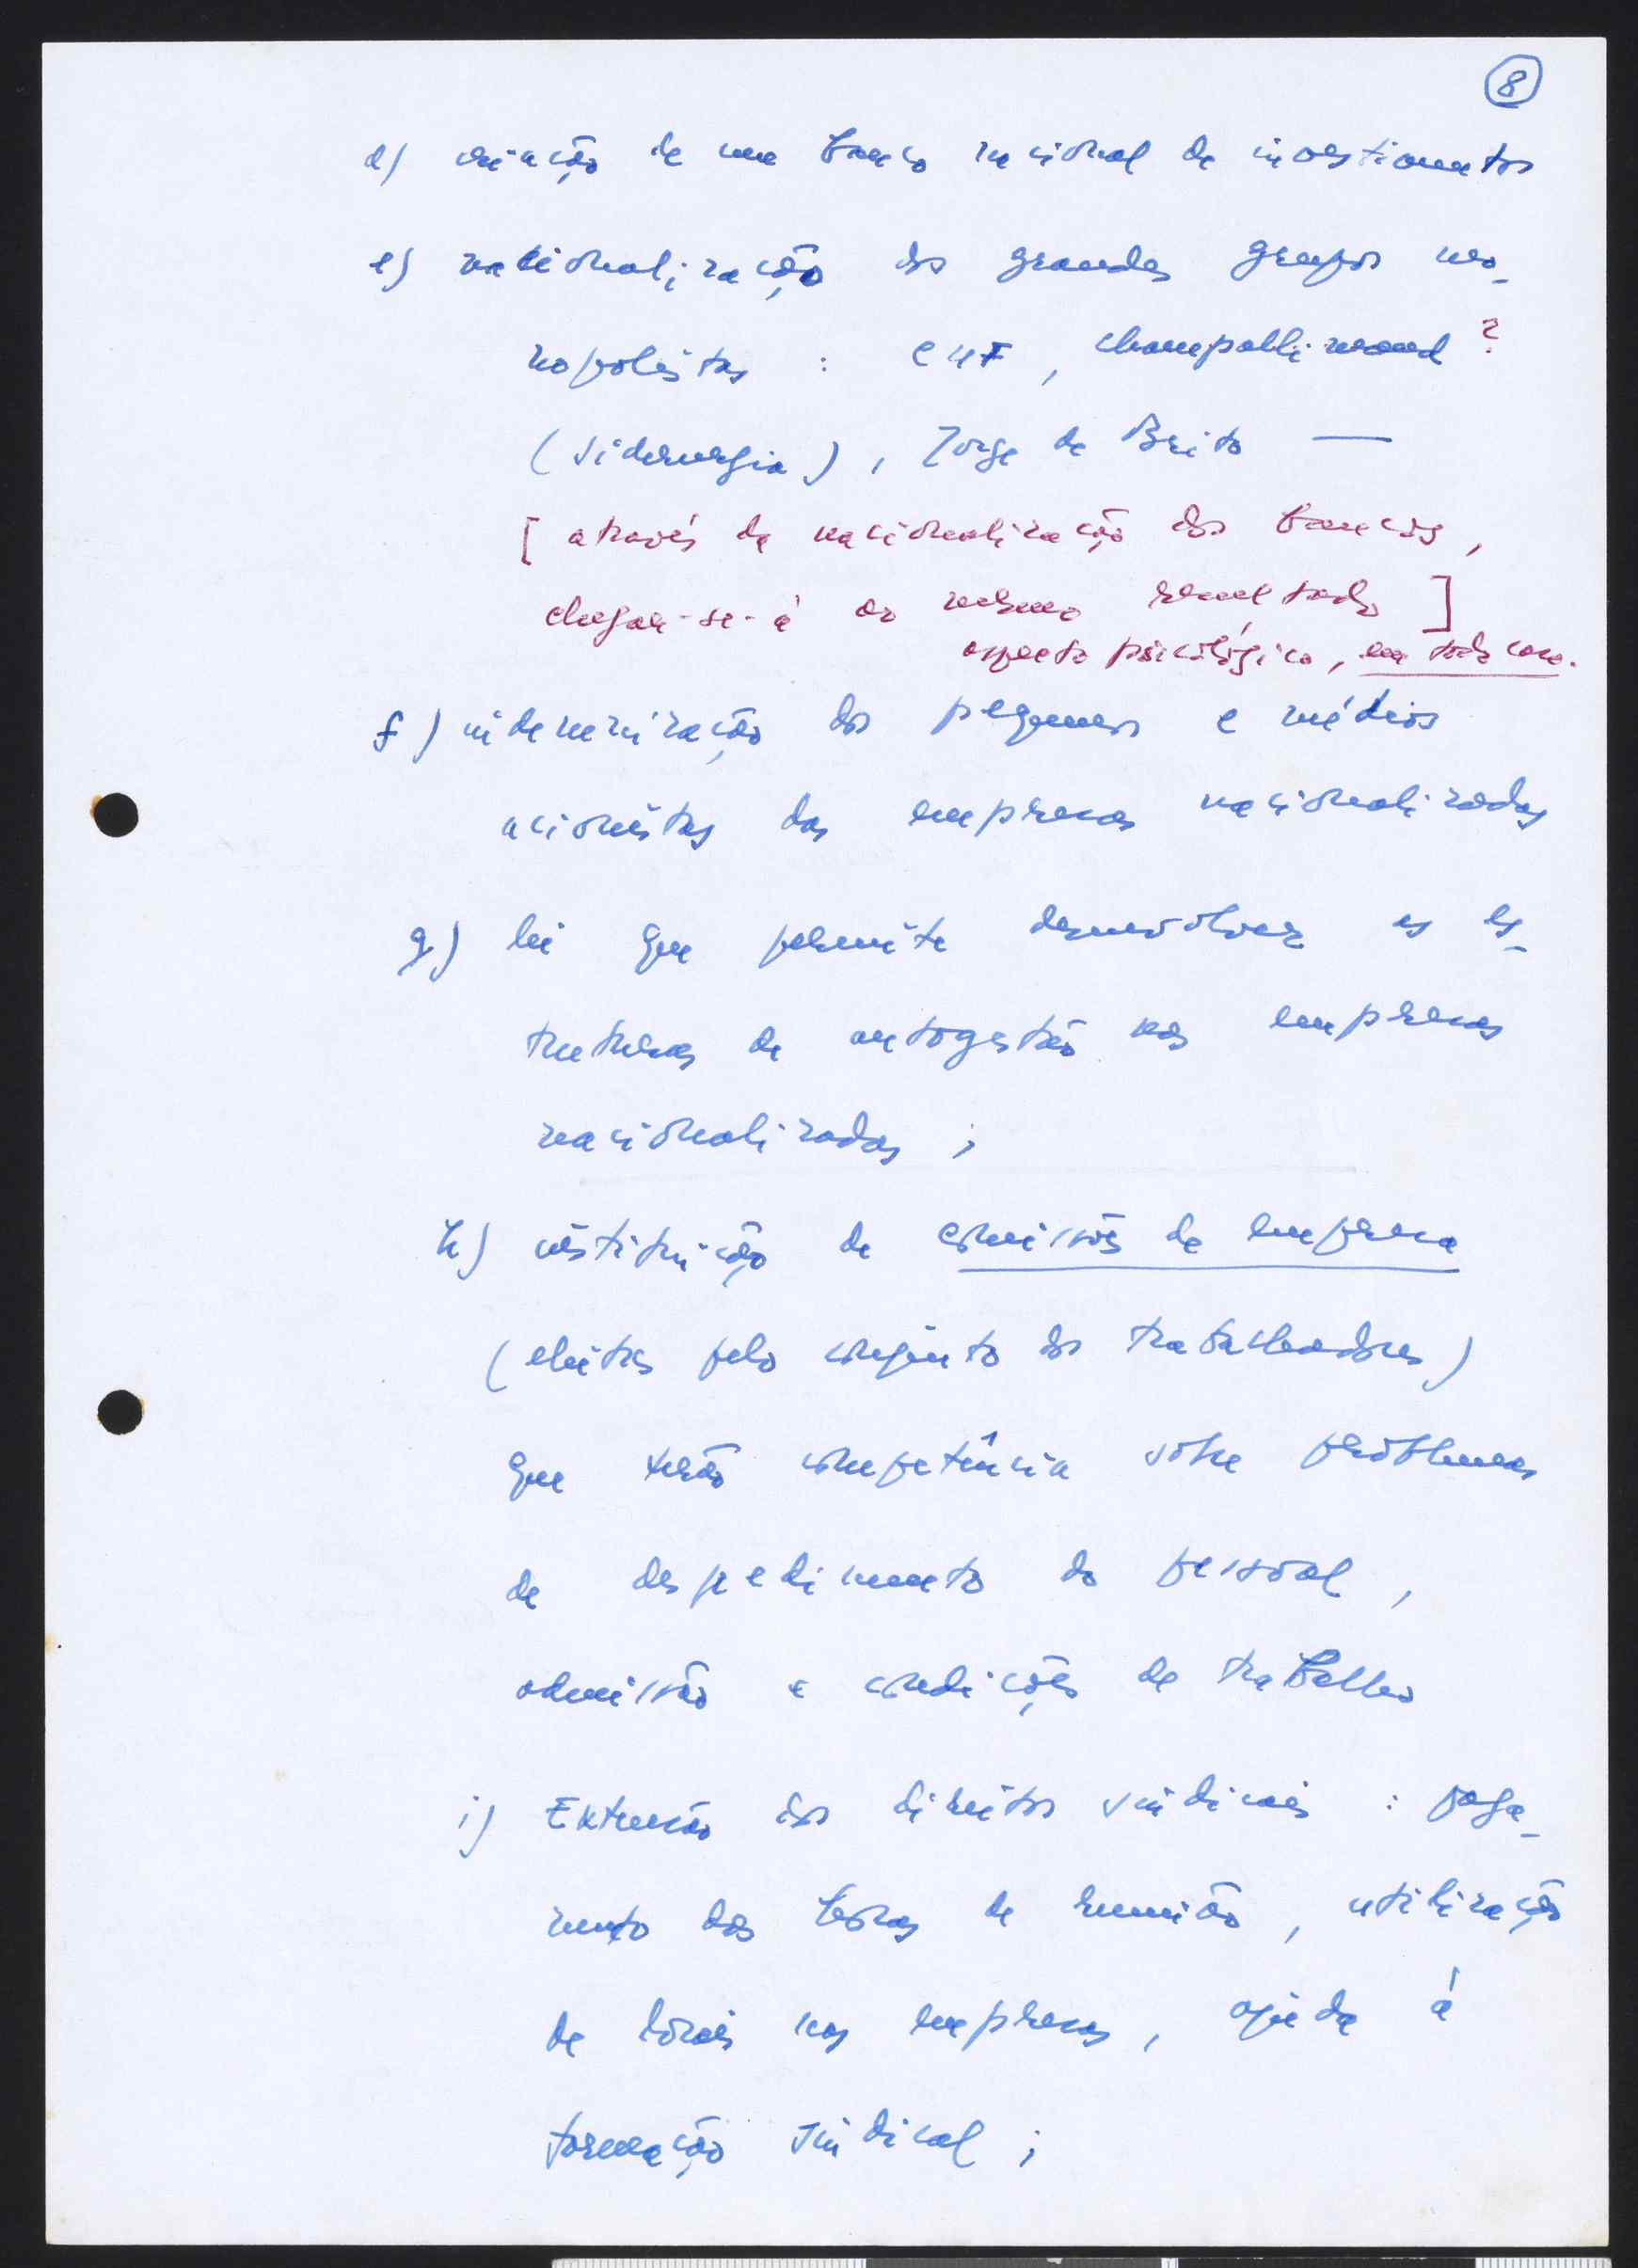 8
d) criação de um banco nacional de investimentos
e) nacionalização dos grandes grupos mo-
nopolistas : CUF, Champallimaud ?
(siderurgia), Jorge de Brito —
[ através da nacionalização dos bancos,
chegar-se-á ao mesmo resultado ]
aspecto psicológico, em todo caso.
f) indemnização dos pequenos e médios
accionistas das empresas nacionalizadas
g) lei que permita desenvolver as es-
truturas de autogestão nas empresas
nacionalizadas ;
h) instituição de comissões de empresa
(eleitas pelo conjunto dos trabalhadores)
que terão competência sobre problemas
de despedimento do pessoal,
admissão e condições de trabalho
i) Extensão dos direitos sindicais : paga-
mento das horas de reunião, utilização
de locais nas empresas, ajuda à
formação sindical ;